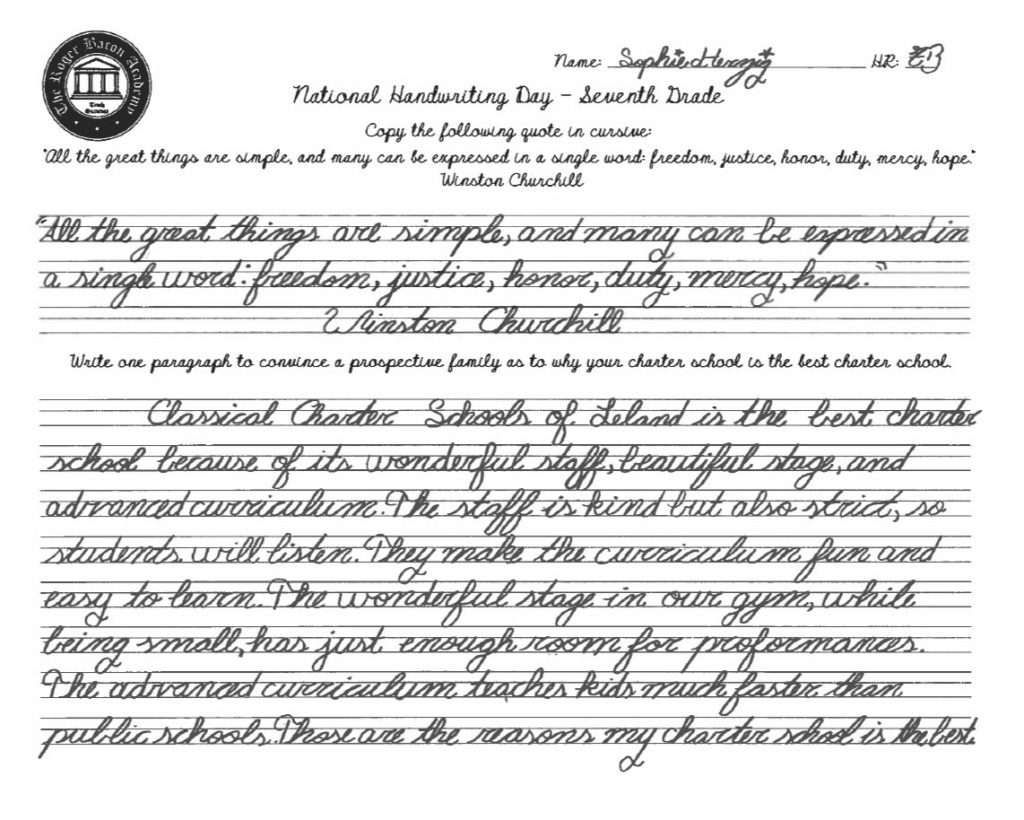 The Roger Bacon Academy
Truth
Name: Sophie Herzig HR: 7B
National Handwriting Day – Seventh Grade
Copy the following quote in cursive:
"All the great things are simple, and many can be expressed in a single word: freedom, justice, honor, duty, mercy, hope."
Winston Churchill
"All the great things are simple, and many can be expressed in
a single word: freedom, justice, honor, duty, mercy, hope."
Winston Churchill
Write one paragraph to convince a prospective family as to why your charter school is the best charter school.
Classical Charter Schools of Leland is the best charter
school because of its wonderful staff, beautiful stage, and
advanced curriculum. The staff is kind but also strict, so
students will listen. They make the curriculum fun and
easy to learn. The wonderful stage in our gym, while
being small, has just enough room for proformances.
The advanced curriculum teaches kids much faster than
public schools. Those are the reasons my charter shool is the best.